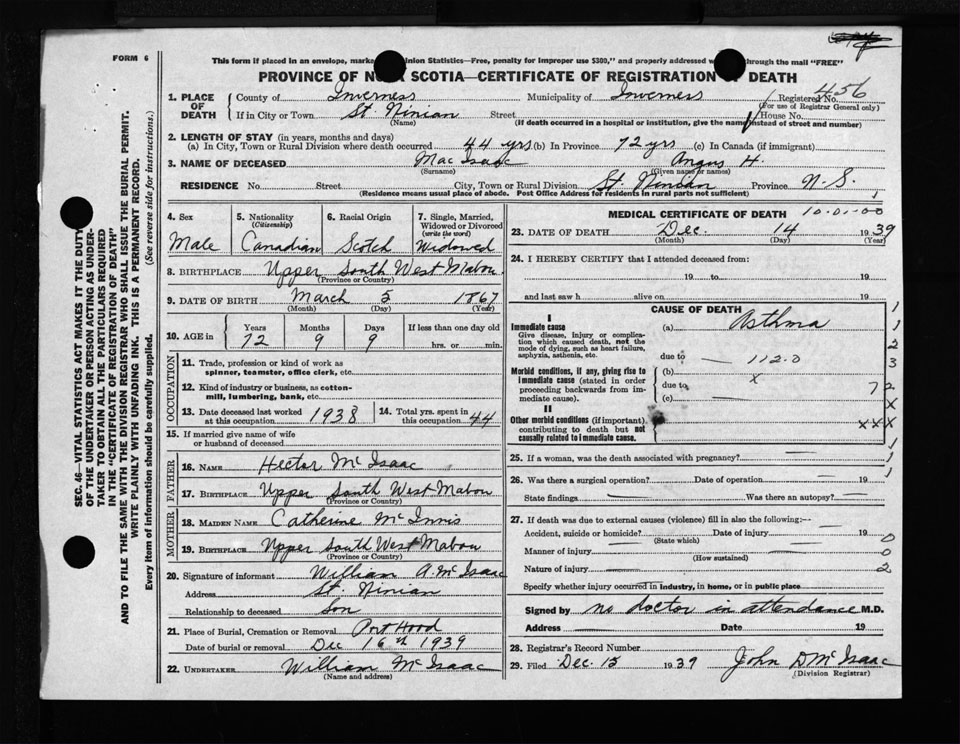 FORM 6
This form if placed in an envelope, marked inion Statistics—Free, penalty for improper use $300," and properly addressed through the mail "FREE"
PROVINCE OF NOVA SCOTIA—CERTIFICATE OF REGISTRATION OF DEATH
1. PLACE OF DEATH County of Inverness Municipality of Inverness Registered No. 456
(For use of Registrar General only)
If in City or Town St. Ninian Street House No.
(Name) (If death occurred in a hospital or institution, give the name instead of street and number)
2. LENGTH OF STAY (in years, months and days)
(a) In City, Town or Rural Division where death occurred 44 yrs (b) In Province 72 yrs (c) In Canada (if immigrant)
3. NAME OF DECEASED Mac Isaac Angus H.
(Surname) (Given name or names)
RESIDENCE No. Street City, Town or Rural Division St. Ninian Province N.S.
(Residence means usual place of abode. Post Office Address for residents in rural parts not sufficient)
4. Sex 5. Nationality (Citizenship) 6. Racial Origin 7. Single, Married, Widowed or Divorced (write the word)
Male Canadian Scotch Widowed
8. BIRTHPLACE Upper South West Mabou.
(Province or Country)
9. DATE OF BIRTH March 5 1867
(Month) (Day) (Year)
10. AGE in Years Months Days If less than one day old
72 9 9 hrs. or min.
OCCUPATION
11. Trade, profession or kind of work as
spinner, teamster, office clerk, etc.
12. Kind of industry or business, as cotton-
mill, lumbering, bank, etc.
13. Date deceased last worked at this occupation 1938 14. Total yrs. spent in this occupation 44
15. If married give name of wife
or husband of deceased
FATHER
16. NAME Hector Mc Isaac
17. BIRTHPLACE Upper South West Mabou
(Province or Country)
MOTHER
18. MAIDEN NAME Catherine Mc Innis
19. BIRTHPLACE Upper South West Mabou
(Province or Country)
20. Signature of informant William A. Mc Isaac
Address St. Ninian
Relationship to deceased Son
21. Place of Burial, Cremation or Removal Port Hood
Date of burial or removal Dec 16th 1939
22. UNDERTAKER William Mc Isaac
(Name and address)
MEDICAL CERTIFICATE OF DEATH 10.01.00
23. DATE OF DEATH Dec. 14 1939
(Month) (Day) (Year)
24. I HEREBY CERTIFY that I attended deceased from:
19 to 19
and last saw h alive on 19
CAUSE OF DEATH
I
Immediate cause (a) Asthma
Give disease, injury or complica-
tion which caused death, not the
mode of dying, such as heart failure,
asphyxia, asthenia, etc.
due to — 112.0
Morbid conditions, if any, giving rise to (b)
immediate cause (stated in order x
proceeding backwards from im- due to 7
mediate cause). (c)
II
Other morbid conditions (if important)
contributing to death but not
causally related to immediate cause.
1
1
2
3
2
X
XXX
1
1
1
25. If a woman, was the death associated with pregnancy?
26. Was there a surgical operation? Date of operation 19
State findings Was there an autopsy?
27. If death was due to external causes (violence) fill in also the following:—
Accident, suicide or homicide? Date of injury 19 0
(State which)
Manner of injury 0
(How sustained)
Nature of injury 2
Specify whether injury occurred in industry, in home, or in public place
Signed by no doctor in attendance M.D.
Address Date 19
28. Registrar's Record Number
29. Filed Dec. 15 1939 John D Mc Isaac
(Division Registrar)
SEC. 46—VITAL STATISTICS ACT MAKES IT THE DUTY
OF THE UNDERTAKER OR PERSON ACTING AS UNDER-
TAKER TO OBTAIN ALL THE PARTICULARS REQUIRED
IN THE "CERTIFICATE OF REGISTRATION OF DEATH"
AND TO FILE THE SAME WITH THE DIVISION REGISTRAR WHO SHALL ISSUE THE BURIAL PERMIT.
WRITE PLAINLY WITH UNFADING INK. THIS IS A PERMANENT RECORD.
Every item of information should be carefully supplied. (See reverse side for instructions.)